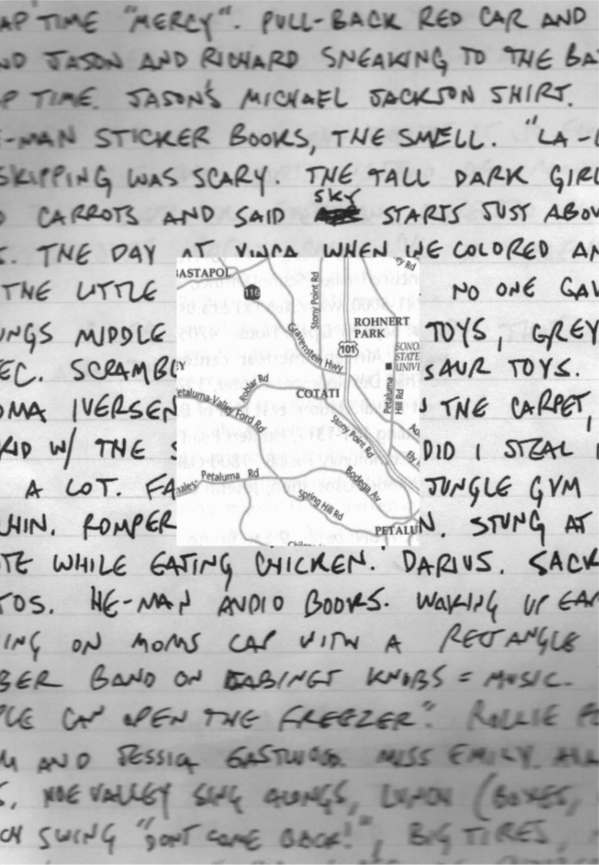 AP TIME "MERCY". PULL-BACK RED CAR AND
ND JASON AND RICHARD SNEAKING TO THE BA
P TIME. JASON'S MICHAEL JACKSON SHIRT.
E-MAN STICKER BOOKS, THE SMELL. "LA-
SKIPPING WAS SCARY. THE TALL DARK GIRL
SKY
CARROTS AND SAID STARTS JUST ABOV
S. THE DAY AT WHEN WE COLORED AN
THE LITTLE NO ONE GAV
UNGS MIDDLE TOYS, GREY
EC. SCRAMBL SAUR TOYS.
OMA IVERSEN THE CARPET,
KID W/ THE DID I STEAL
A LOT. FA JUNGLE GYM
HIN. ROMPER N. STUNG AT
TE WHILE EATING CHICKEN. DARIUS. SACK
TOS. HE-MAN AUDIO BOOKS. WAKING UP EAR
ING ON MOMS CAR WITH A RECTANGLE
BER BAND ON CABINET KNOBS = MUSIC.
PLE CAN OPEN THE FREEZER". ROLLIE
M AND JESSICA EASTWOOD. MISS EMILY. ALL
S, NOE VALLEY SING ALONGS, (BOXES,
CH SWING "DON'T COME BACK!", BIG TIRES,
BASTAPOL
116
Stony Point Rd
Gravenstein Hwy
ROHNERT
PARK
101
SONO
STATE
UNIV
Petaluma
Hill Rd
COTATI
Roblar Rd
etaluma-Valley Ford Rd
Stony Point Rd
Petaluma Rd
Bodega Av
Spring Hill Rd
PETALU